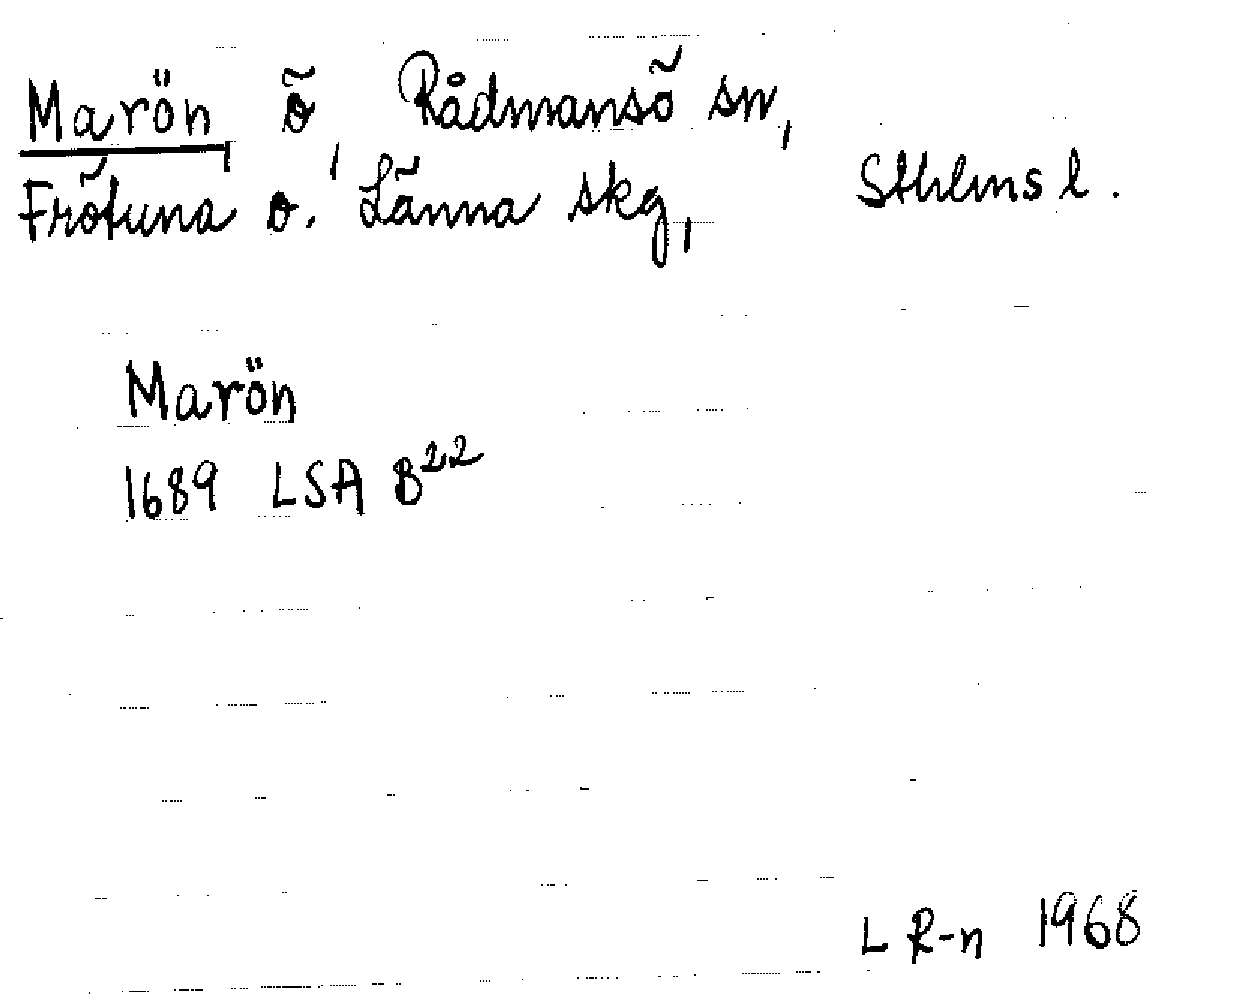 Marön, ö, Rådmansö sn,
Frötuna o. Länna skg, Sthlms l.
Marön
1689 LSA B22
L R-n 1968